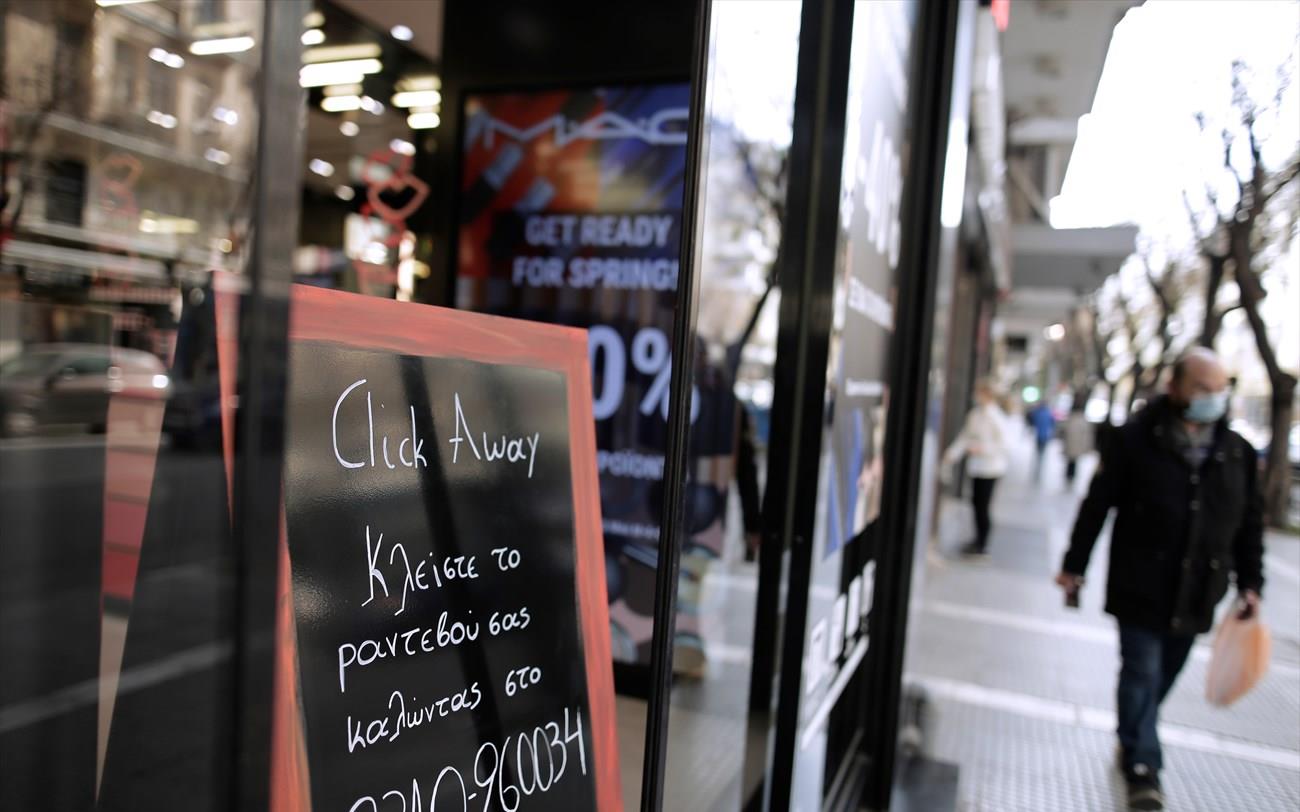 M·A·C
GET READY
FOR SPRING!
0%
Click Away
Κλείστε το
ραντεβού σας
καλώντας στο
2310-960034